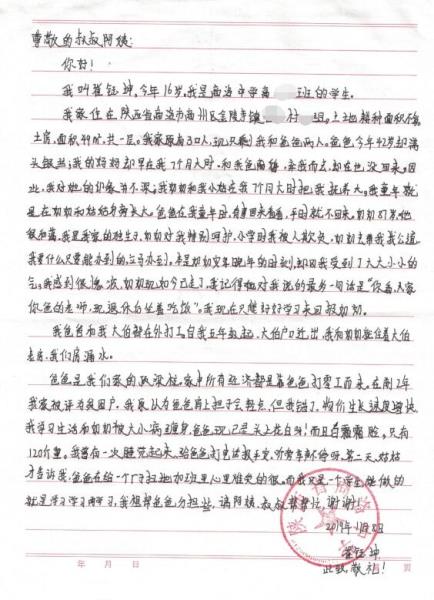 尊敬的叔叔阿姨:
你好!
我叫崔钰坤,今年16岁,我是商洛中学高 班的学生。
我家住在陕西省商洛市商州区金陵寺镇 村 组。土地耕种面积不多
土房,面积49㎡,共一层。我家原有3口人,现只剩我和爸爸两人。爸爸今年42岁却满
头银丝;我的妈妈却早在我7个月大时,和我爸离婚,弃我而去,却在也没回来。因
此,我对她的印象并不深;我奶奶和我小姑在我7个月大时把我抚养大。我童年就
是在奶奶和姑姑身旁长大。爸爸在我童年时,
很和蔼,我是我家的独生子,奶奶对我特别呵护,小学时我被人欺负,奶奶去帮我找公道,
我要什么只要能办到的,公司办到。本是奶奶安享晚年的时刻,却因我受到了大大小小的
气;我感到很愧疚,奶奶现如今已走了,我记得她对我说的最多一句话是"你看,人家
你爸的老师,现退休自坐着吃饭"。我现在只想好好学习来回报奶奶。
我爸爸和我大伯都在外打工,自我五年级起,大伯户口迁出,我和奶奶住着大伯
老房,我们房漏水。
爸爸是我们家的顶梁柱。家中所有经济都是靠爸爸打零工而来。在前2年
我家被评为贫困户,我原认为爸爸肩上担子会轻点,但我错了,物价生长速度略快,
我学习生活和奶奶被大小病缠身,爸爸现已是头上花白头!而且白霜霜脸。只有
120斤重。我曾有一次睡觉起来,给爸爸打电话
才告诉我,爸爸在给一个厂子扫地加班,心里难受的很。而我只是一个学生能做的
就是学习学习再学习,我想帮爸爸分担些,请阿姨、叔叔帮帮忙,谢谢!
2019年 月 日
崔钰坤
此致敬礼!
陕西省商洛中学
年 月 日 页